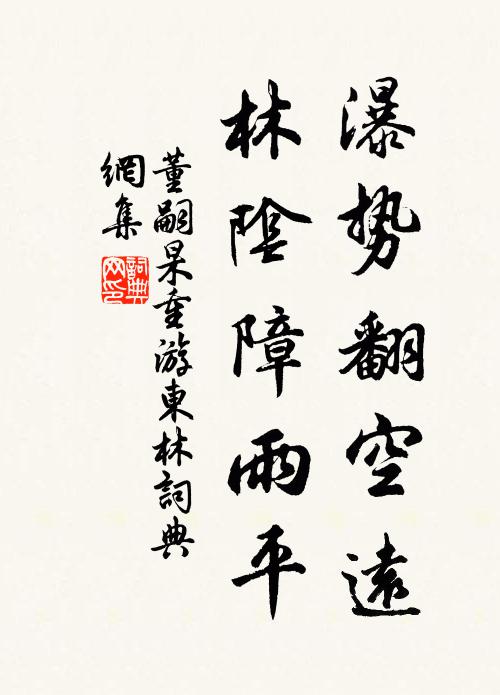 瀑势翻空遠
林陰障雨平
董嗣杲重游東林詞典
網集
詞典網印